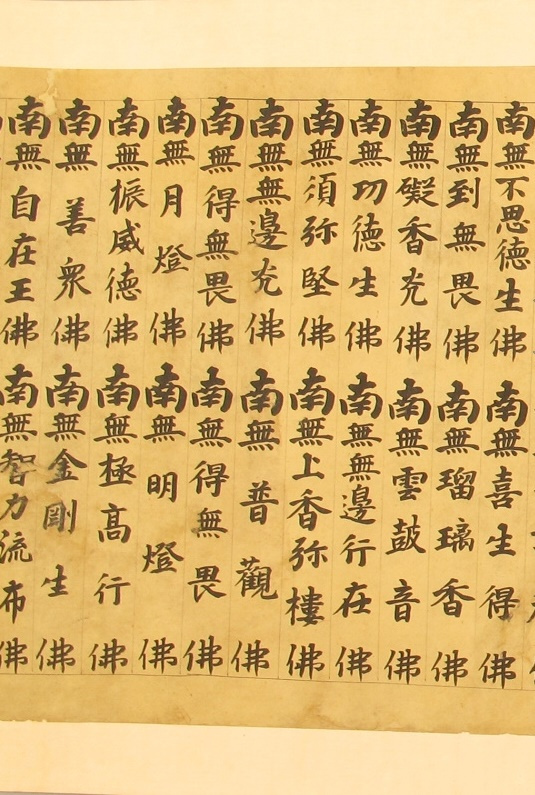 南無不思德生佛 南無喜生得佛
南無到無畏佛 南無瑠璃香佛
南無礙香光佛 南無雲鼓音佛
南無功德生佛 南無無邊行在佛
南無須弥堅佛 南無上香弥樓佛
南無無邊光佛 南無普觀佛
南無得無畏佛 南無得無畏佛
南無月燈佛 南無明燈佛
南無振威德佛 南無極高行佛
南無善衆佛 南無金剛生佛
南無自在王佛 南無智力流布佛